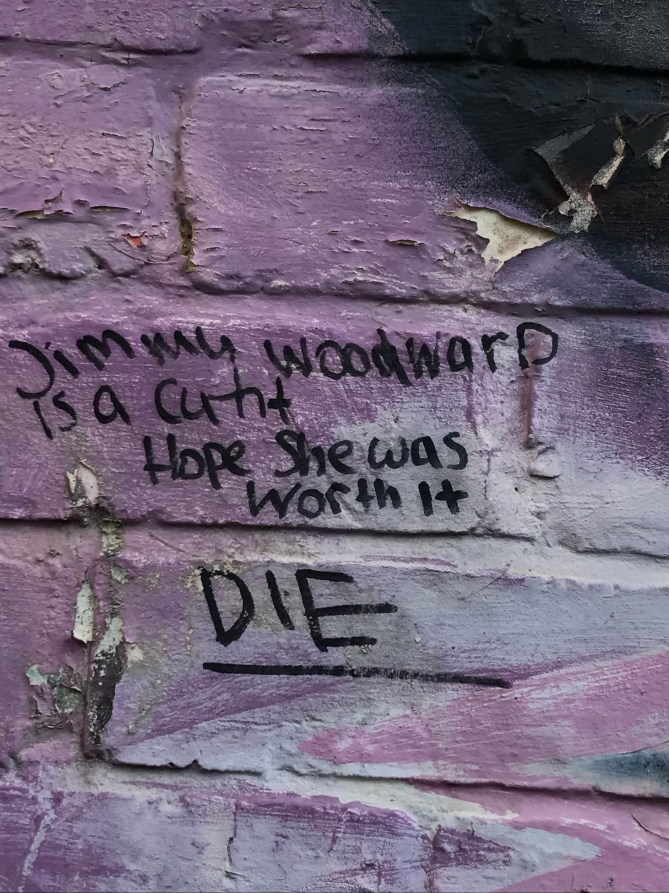 Jimmy WoodwarD
is a Cunt
Hope She was
Worth It
DIE